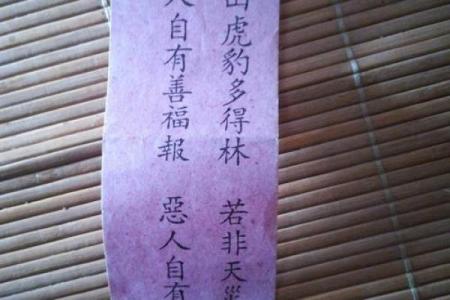 山虎豹多得林 若非天災
人自有善福報 惡人自有